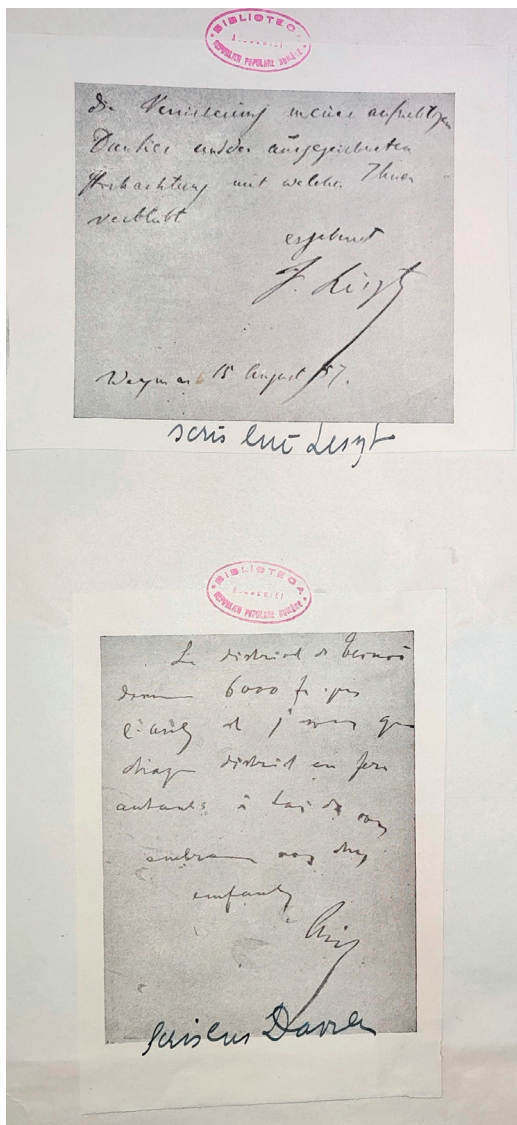 BIBLIOTECA
REPUBLICII POPULARE ROMÂNE
die Versicherung meines aufrichtigen
Dankes und der ausgezeichneten
Hochachtung mit welcher Ihnen
verbleibt
ergebenst
F. Liszt
Weymar 15 August 57.
scris lui Liszt
BIBLIOTECA
REPUBLICII POPULARE ROMÂNE
Le district de
6000 fr. pour
l'asile et j' que
chaque district en fera
autant à
embrasse vos chers
enfants
scris lui Davila